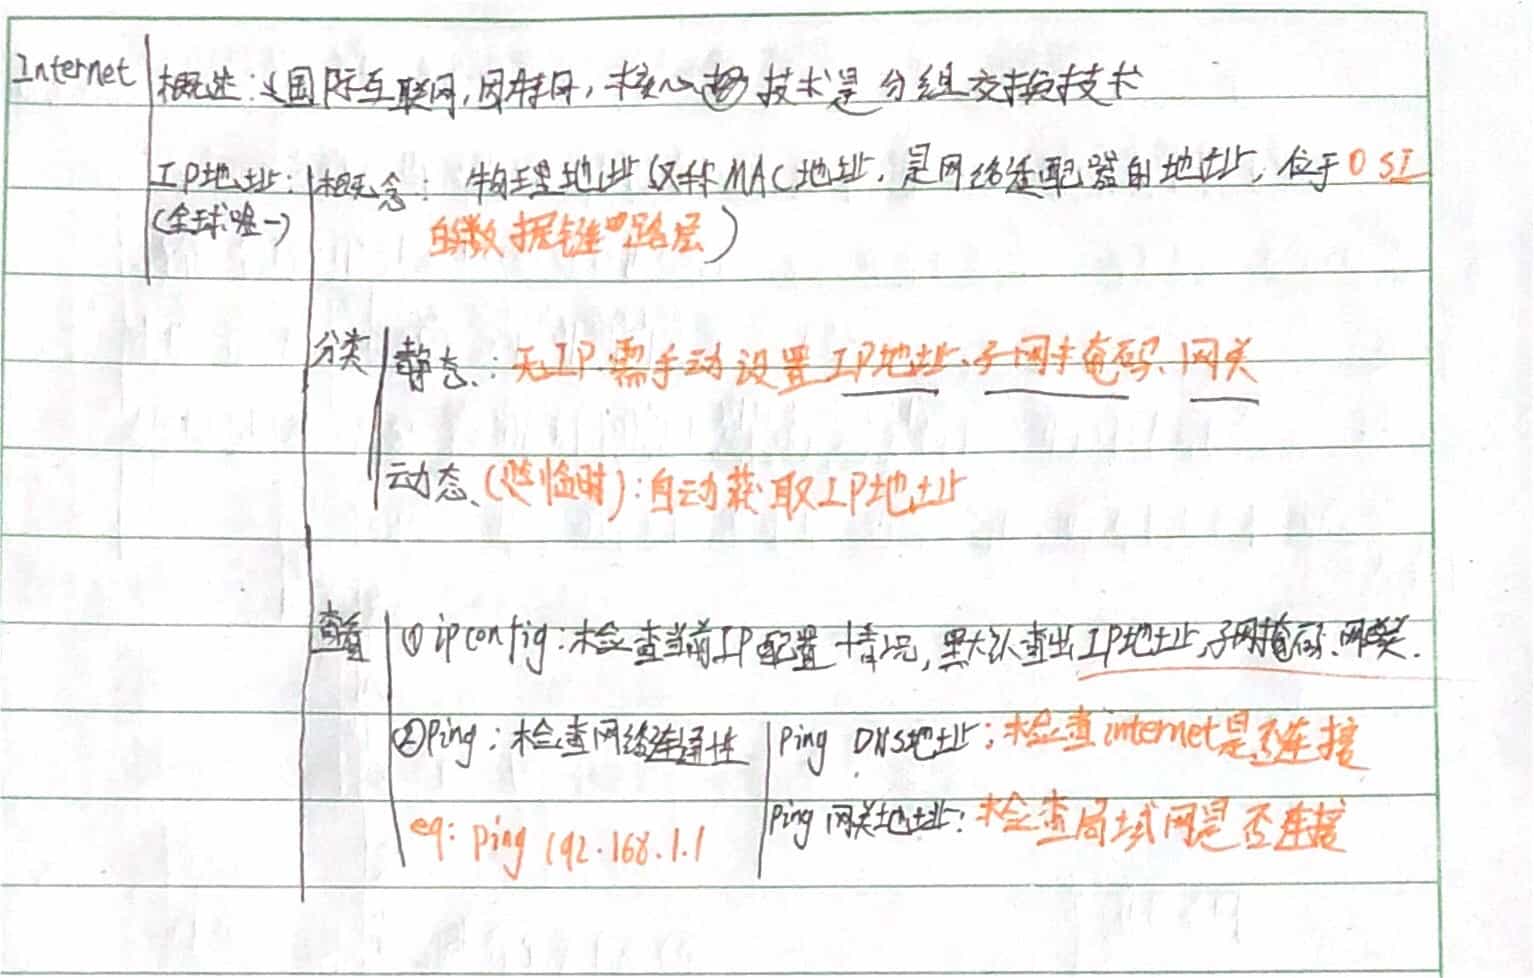 Internet
概述：国际互联网，因特网，核心技术是分组交换技术
IP地址：
(全球唯一)
概念：物理地址(又称MAC地址，是网络适配器的地址，位于OSI
的数据链路层)
分类
静态：无IP需手动设置IP地址、子网掩码、网关
动态(临时)：自动获取IP地址
查看
①ipconfig：检查当前IP配置情况，默认查出IP地址，子网掩码、网关.
②Ping：检查网络连通性
Ping DNS地址：检查internet是否连接
eq: Ping 192.168.1.1
Ping 网关地址：检查局域网是否连接